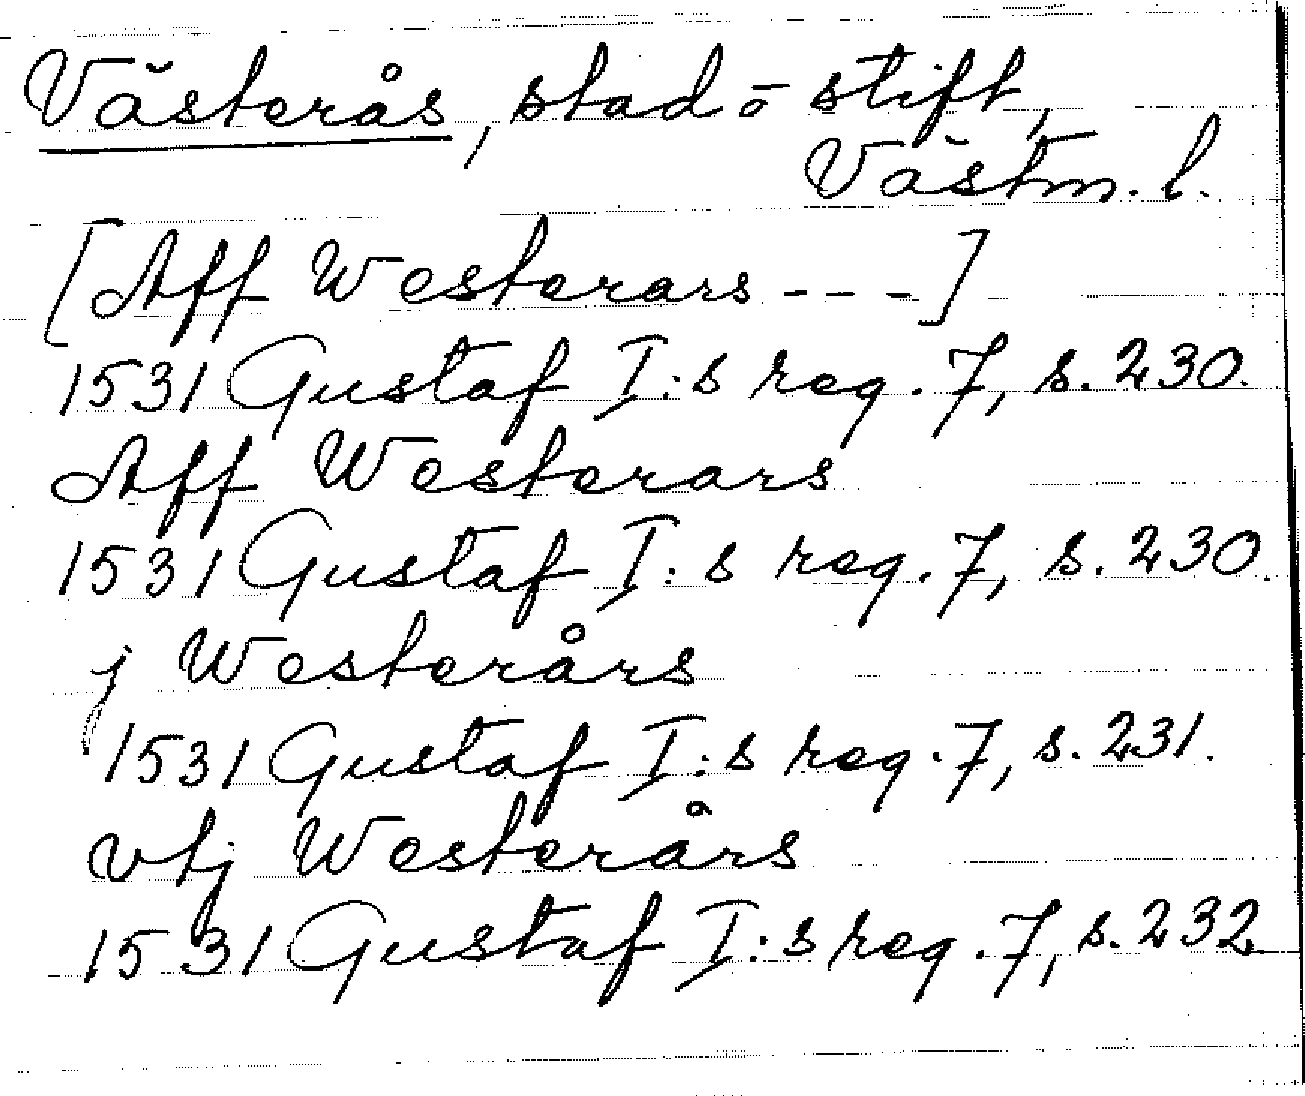 Västerås, stad o stift,
Västm. l.
[Aff Westerars - - - ]
1531 Gustaf I:s reg. 7, s. 230.
Aff Westerars
1531 Gustaf I:s reg. 7, s. 230.
j Westerårs
1531 Gustaf I:s reg. 7, s. 231.
vtj Westerårs
1531 Gustaf I:s reg. 7, s. 232